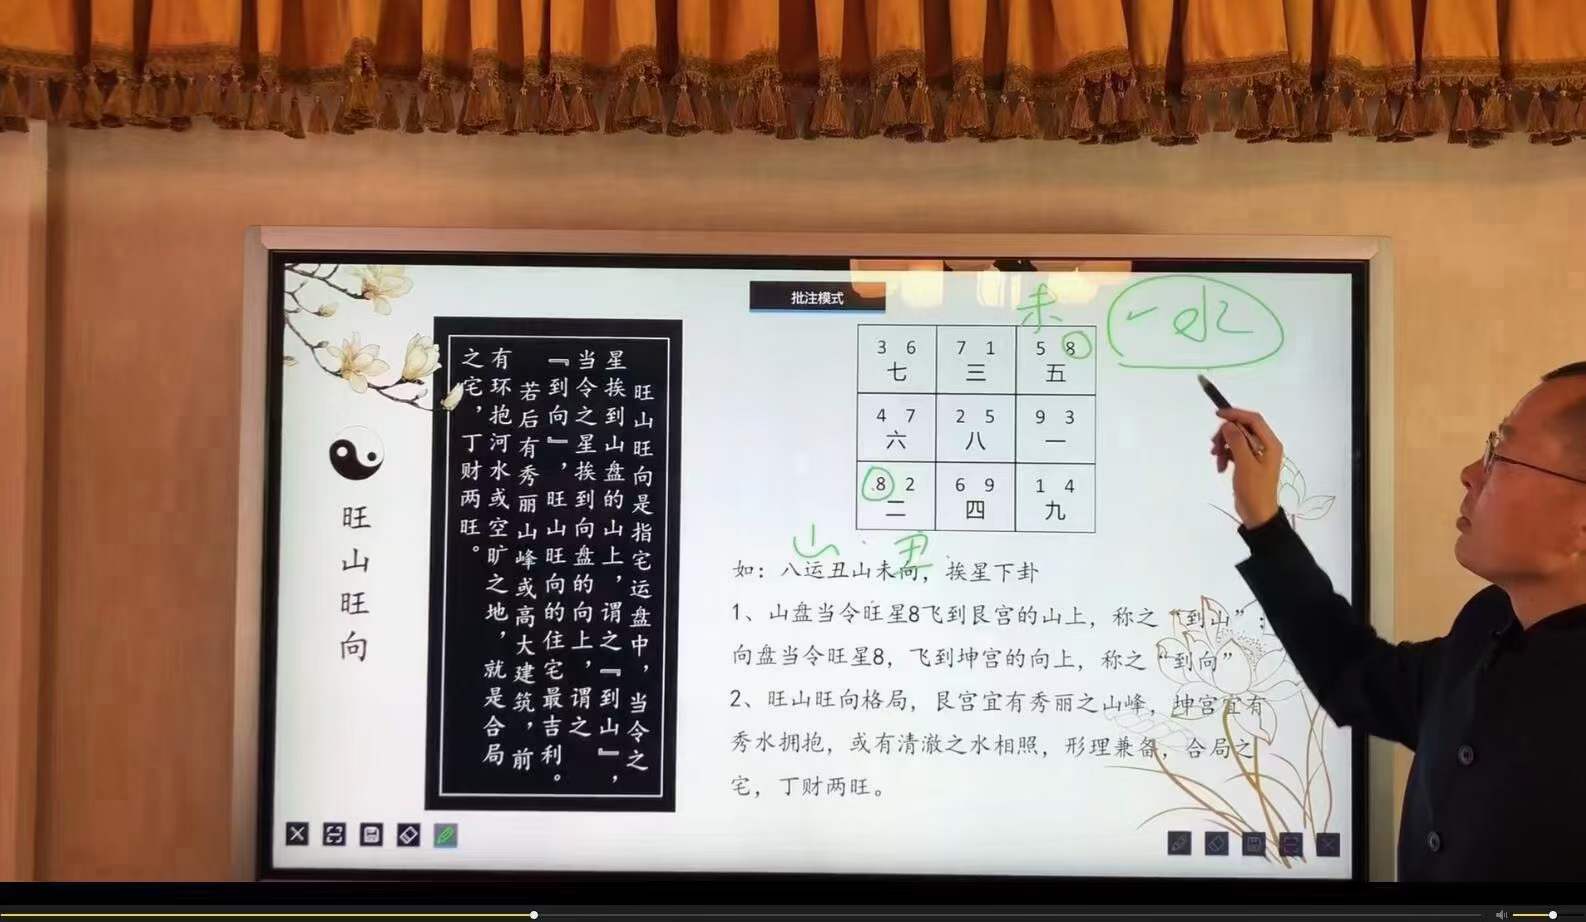 批注模式
未
水
旺山旺向
旺山旺向是指宅运盘中，当令之
星挨到山盘的山上，谓之『到山』，
当令之星挨到向盘的向上，谓之
『到向』，旺山旺向的住宅最吉利。
若后有秀丽山峰或高大建筑，前
有环抱河水或空旷之地，就是合局
之宅，丁财两旺。
3 6 7 1 5 8
七 三 五
4 7 2 5 9 3
六 八 一
8 2 6 9 1 4
二 四 九
山 丑
如：八运丑山未向，挨星下卦
1、山盘当令旺星8飞到艮宫的山上，称之“到山”；
向盘当令旺星8，飞到坤宫的向上，称之“到向”
2、旺山旺向格局，艮宫宜有秀丽之山峰，坤宫宜有
秀水拥抱，或有清澈之水相照，形理兼备，合局之
宅，丁财两旺。